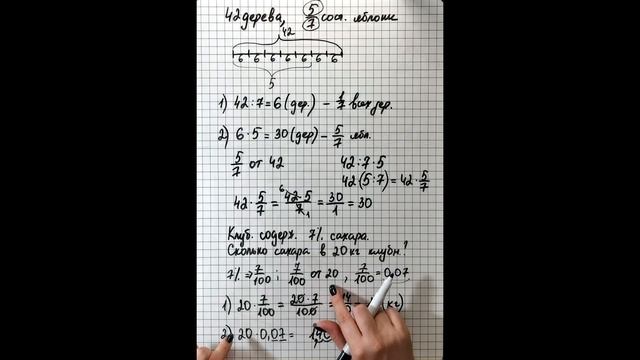 42 дерева, 5/7 сост. яблони
42
6 6 6 6 6 6 6
5
1) 42:7=6 (дер.) – 1/7 всех дер.
2) 6·5=30 (дер) – 5/7 ябл.
5/7 от 42 42:7·5
42(5:7)=42·5/7
42·5/7 = 42·5/7 = 30/1 = 30
6 1
Клуб. содерж. 7% сахара.
Сколько сахара в 20 кг клубн.?
7% ⇒ 7/100 ; 7/100 от 20, 7/100 = 0,07
1) 20·7/100 = 20·7/100 = (кг)
2) 20·0,07 =